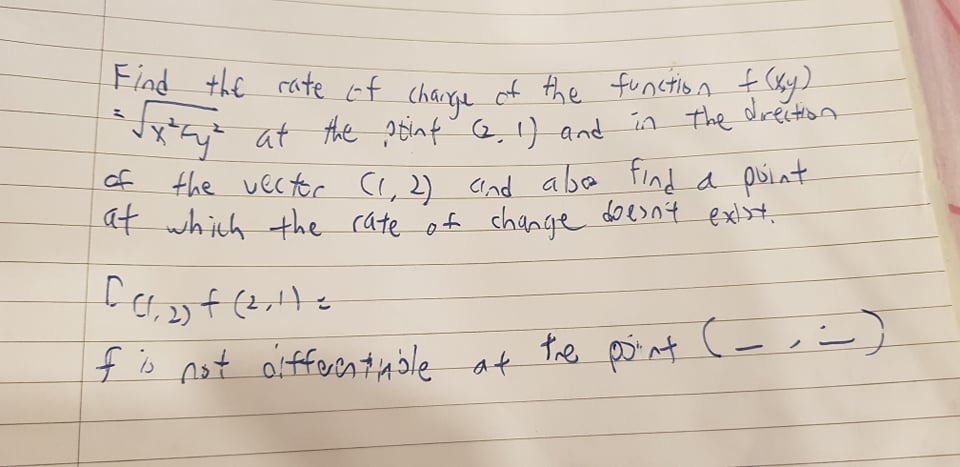 Find the rate of change of the function f(xy)
= √x²+y² at the point (2, 1) and in the direction
of the vector (1, 2) and also find a point
at which the rate of change doesn't exist.
D(1, 2) f (2, 1) =
f is not differentiable at the point ( _ , _ )